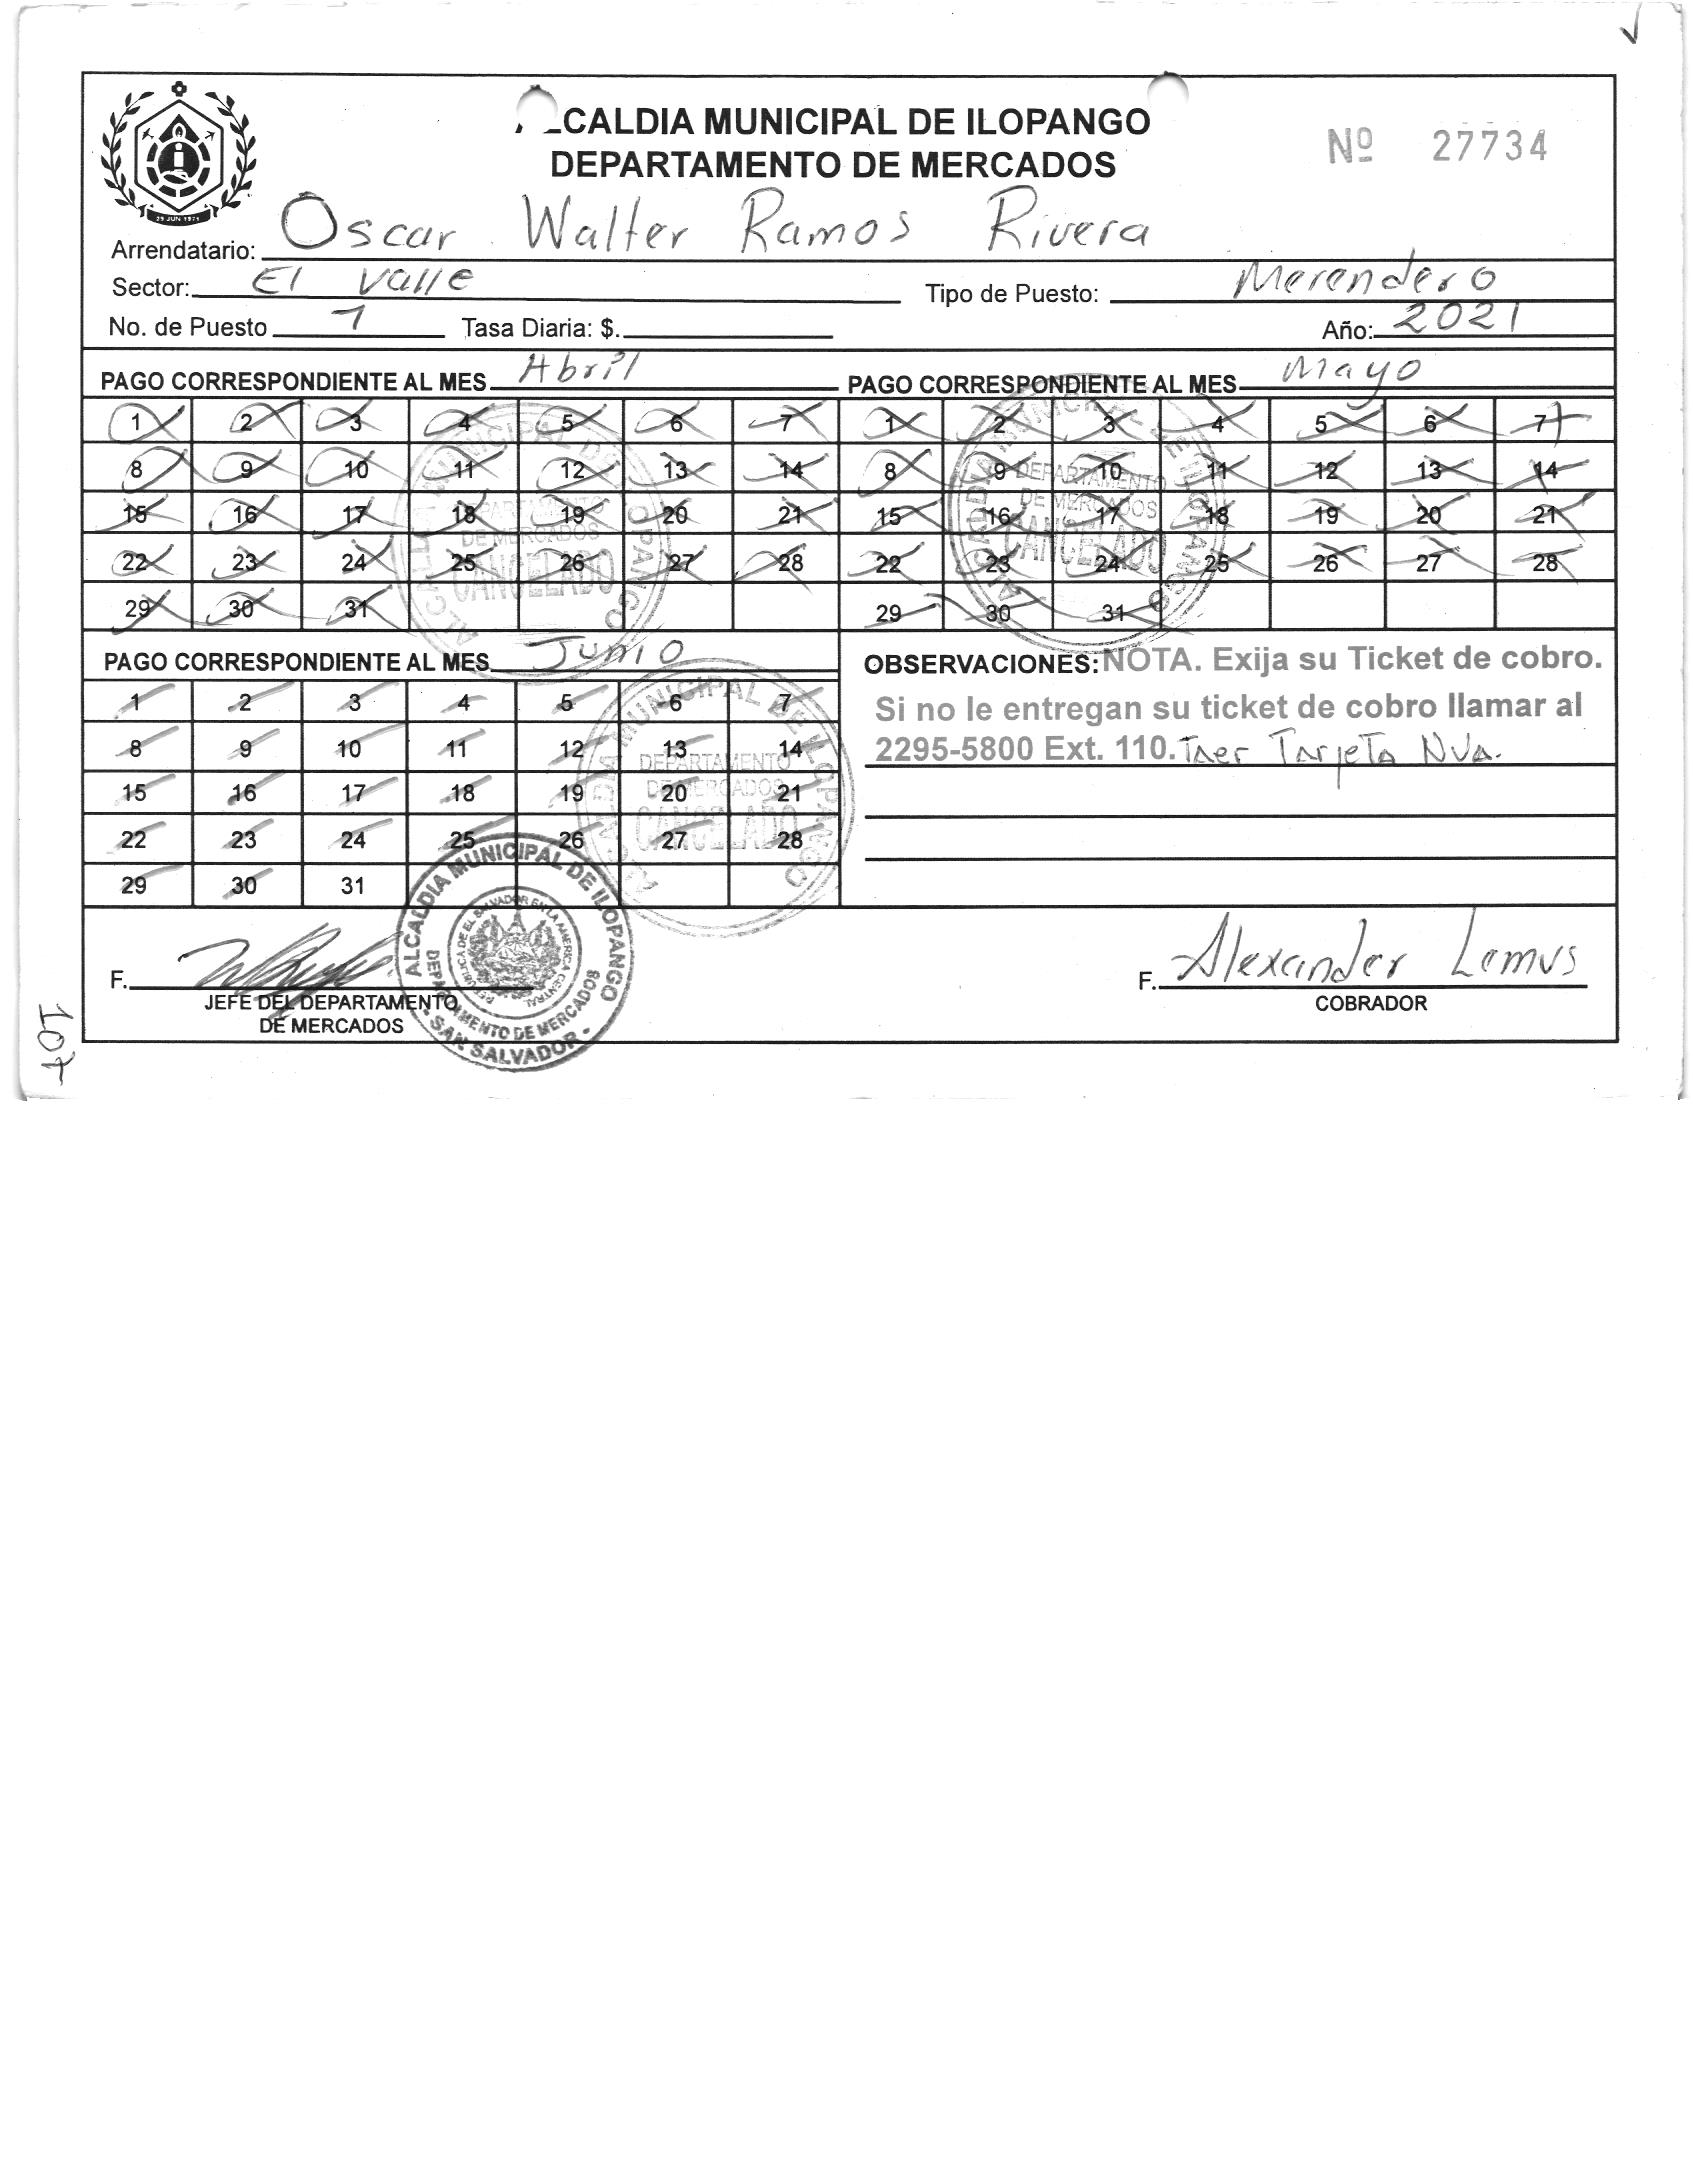 ALCALDIA MUNICIPAL DE ILOPANGO
DEPARTAMENTO DE MERCADOS
Nº 27734
29 JUN 1971
Arrendatario: Oscar Walter Ramos Rivera
Sector: El Valle Tipo de Puesto: Merendero
No. de Puesto 1 Tasa Diaria: $. Año: 2021
PAGO CORRESPONDIENTE AL MES Abril
1 2 3 4 5 6 7
8 9 10 11 12 13 14
15 16 17 18 19 20 21
22 23 24 25 26 27 28
29 30 31
ALCALDIA MUNICIPAL DE ILOPANGO
DEPARTAMENTO
DE MERCADOS
CANCELADO
PAGO CORRESPONDIENTE AL MES Mayo
1 2 3 4 5 6 7
8 9 10 11 12 13 14
15 16 17 18 19 20 21
22 23 24 25 26 27 28
29 30 31
ALCALDIA MUNICIPAL DE ILOPANGO
DEPARTAMENTO
DE MERCADOS
CANCELADO
PAGO CORRESPONDIENTE AL MES Junio
1 2 3 4 5 6 7
8 9 10 11 12 13 14
15 16 17 18 19 20 21
22 23 24 25 26 27 28
29 30 31
ALCALDIA MUNICIPAL DE ILOPANGO
DEPARTAMENTO
DE MERCADOS
CANCELADO
OBSERVACIONES: NOTA. Exija su Ticket de cobro.
Si no le entregan su ticket de cobro llamar al
2295-5800 Ext. 110. Taer Tarjeta Nva.
F.
JEFE DEL DEPARTAMENTO
DE MERCADOS
ALCALDIA MUNICIPAL DE ILOPANGO
REPUBLICA DE EL SALVADOR EN LA AMERICA CENTRAL
DEPARTAMENTO DE MERCADOS
- SAN SALVADOR -
F. Alexander Lemus
COBRADOR